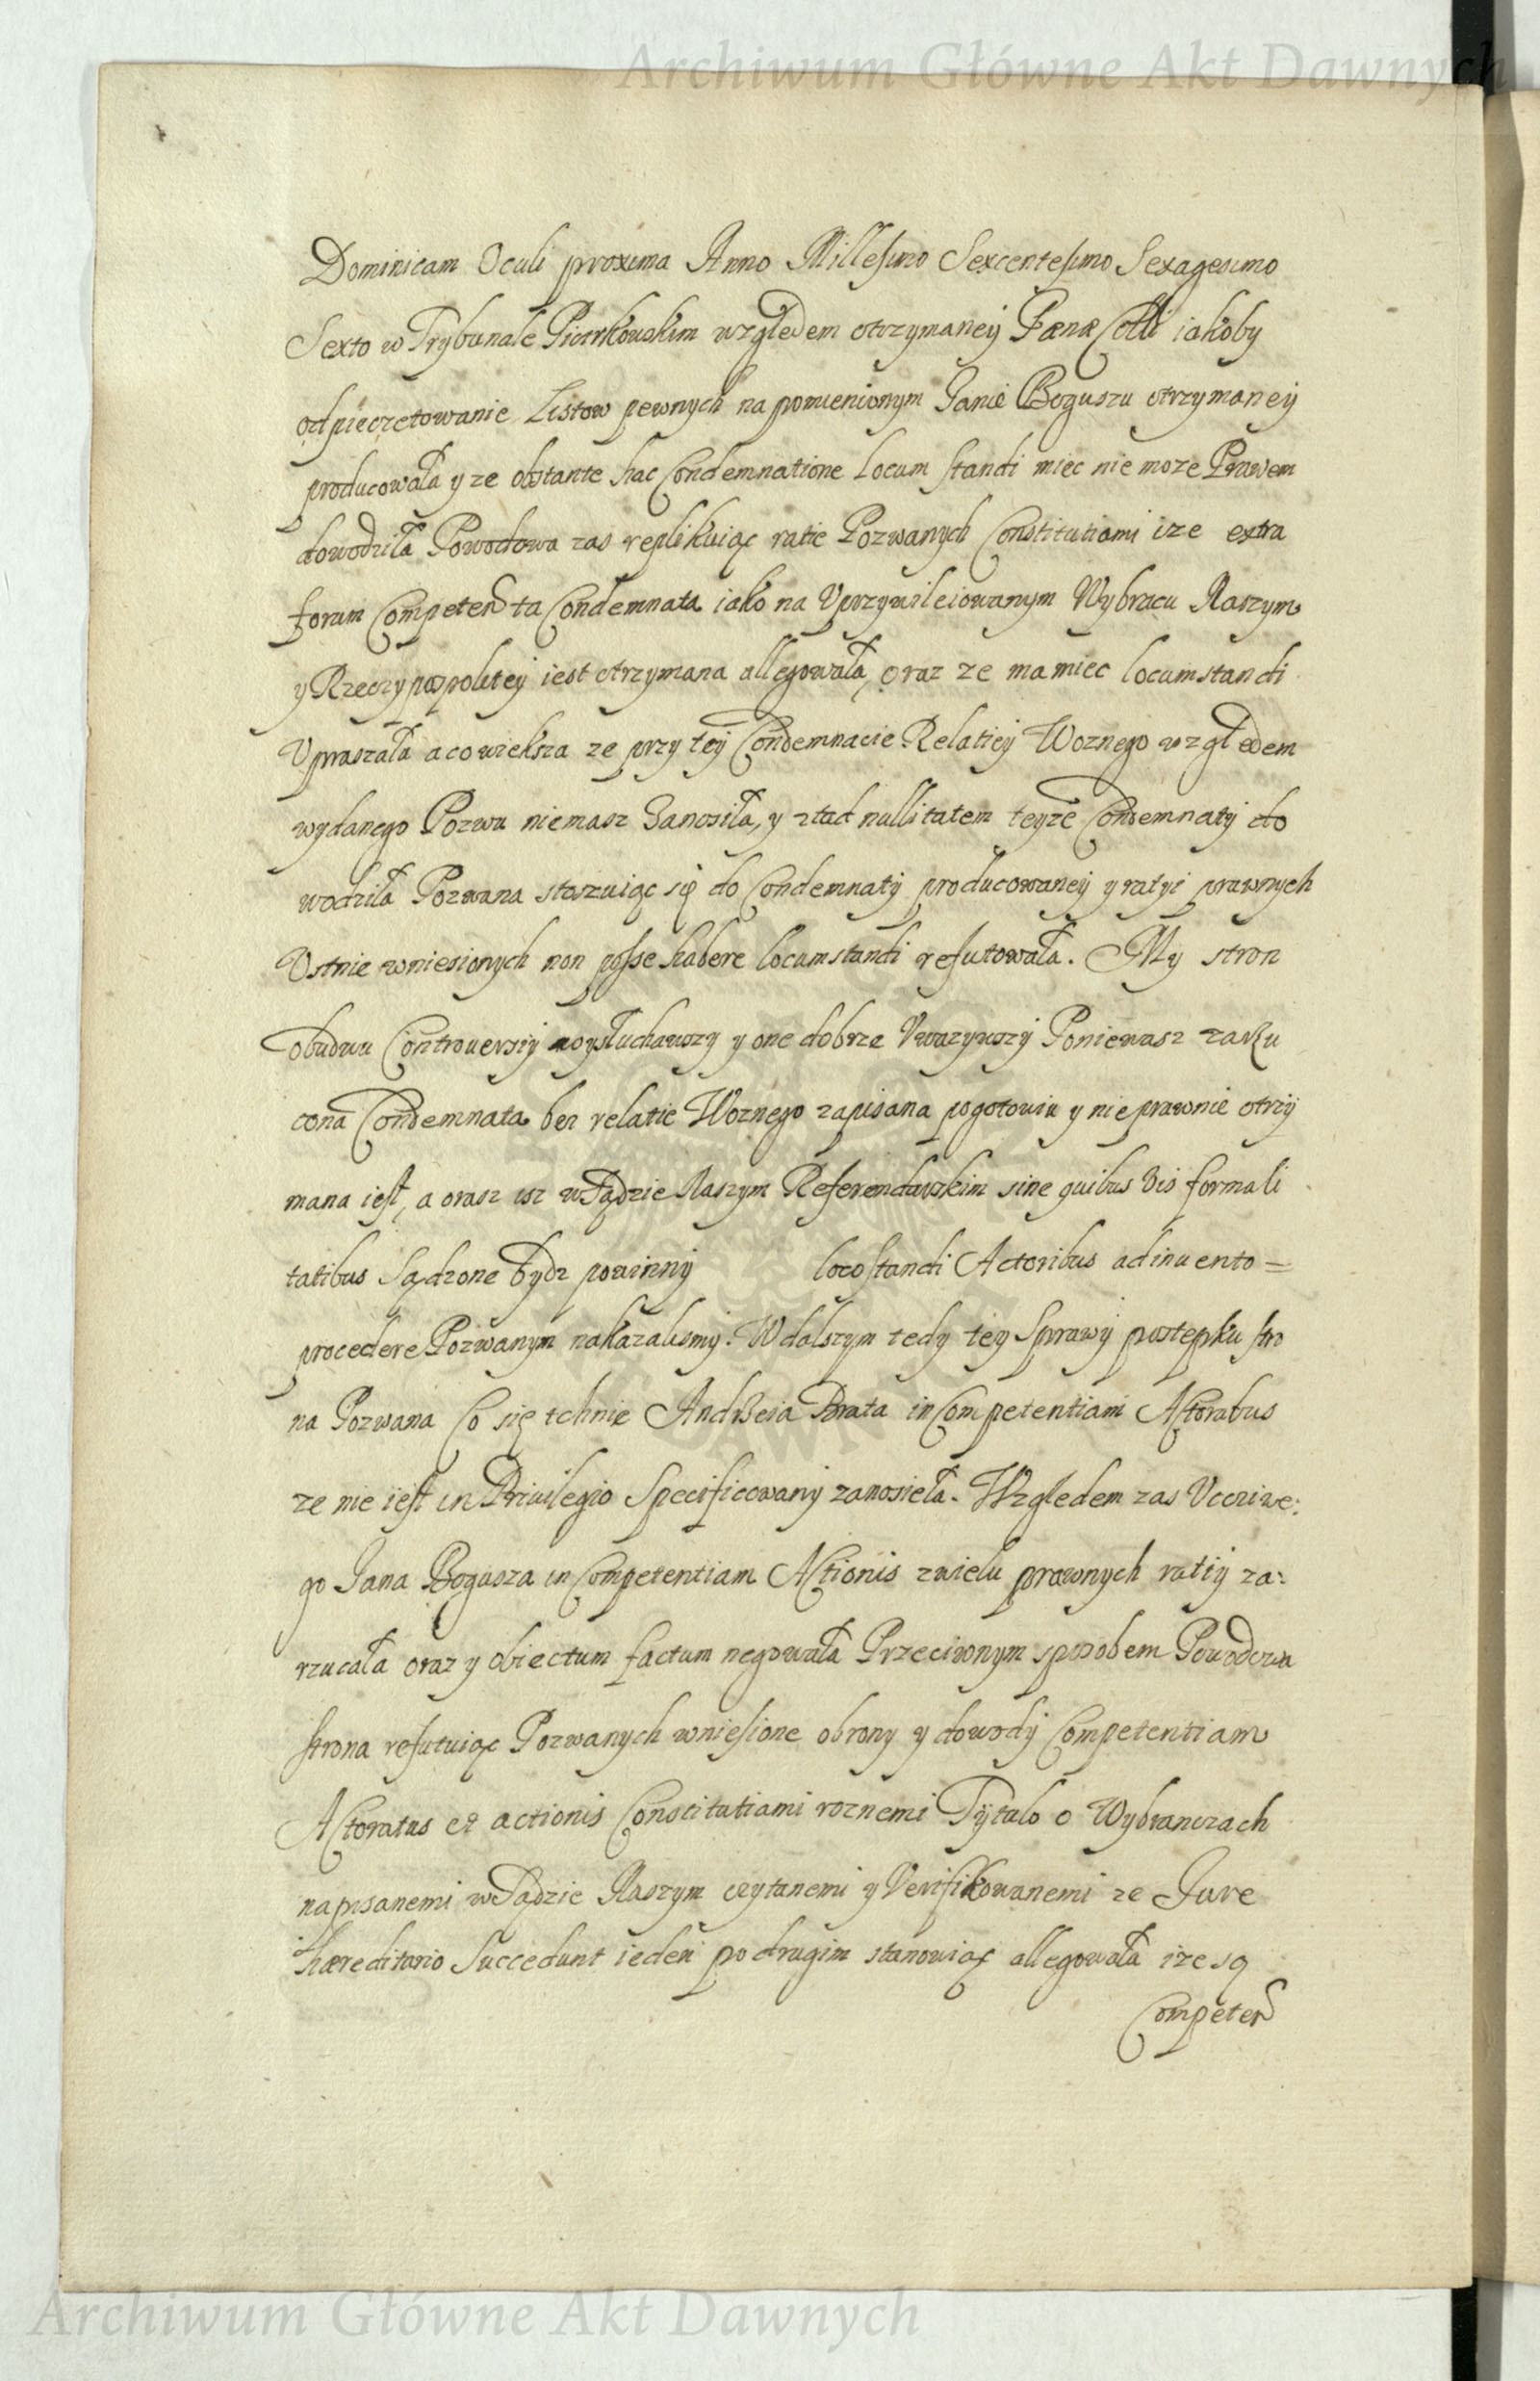 Archiwum Główne Akt Dawnych
Dominicam Oculi proxima Anno Millesimo Sexcentesimo Sexagesimo
Sexto w Trybunale Piotrkowskim względem otrzymaney Pænæ Colli iakoby
odpieczetowanie Listow pewnych na pomienionym Janie Boguszu otrzymaney
producowała y ze obstante hac Condemnatione Locum standi miec nie moze Prawem
dowodziła Powodowa zas replikuiąc ratie Pozwanych Constitutiami ize extra
forum Competen ta Condemnata iako na Uprzywileiowanym Wybrancu Naszym
y Rzeczypospolitey iest otrzymana allegowała, oraz ze ma miec locumstandi
Upraszała a co wieksza ze przy tey Condemnacie Relatiey Woznego względem
wydanego Pozwu niemasz Zanosiła, y ztad nullitatem teyze Condemnaty do
wodziła Pozwana stoszuiąc się do Condemnaty producowaney y ratyi prawnych
Ustnie wniesionych non posse habere locumstandi refutowała. My stron
obudwu Controuersiy wysłuchawszy y one dobrze Uwazywszy Poniewasz zarzu
cona Condemnata bez relatie Woznego zapisana pogotowiu y nieprawnie otrzy
mana iest, a orasz isz w Sądzie Naszym Referendarskim sine quibus vis formali
tatibus Sądzone bydz powinny locostandi Actoribus adinuento =
procedere Pozwanym nakazalismy. W dalszym tedy tey Sprawy postepku stro
na Pozwana Co się tchnie Andrzeia Brata inCompetentiam Actoratus
ze nie iest in Priuilegio Specificowany zanosieła. Względem zas Uczciwe:
go Jana Bogusza inCompetentiam Actionis zwielu prawnych ratiy za:
rzucała oraz y obiectum factum negowała Przeciwnym sposobem Powodowa
strona refutuiąc Pozwanych wniesione obrony y dowody Competentiam
Actoratus et actionis Constitutiami roznemi Tytulo o Wybranczach
napisanemi w Sądzie Naszym czytanemi y Verifikowanemi ze Jure
hæreditario Succedunt ieden po drugim stanowiąc allegowała ize są
Competen
Archiwum Główne Akt Dawnych